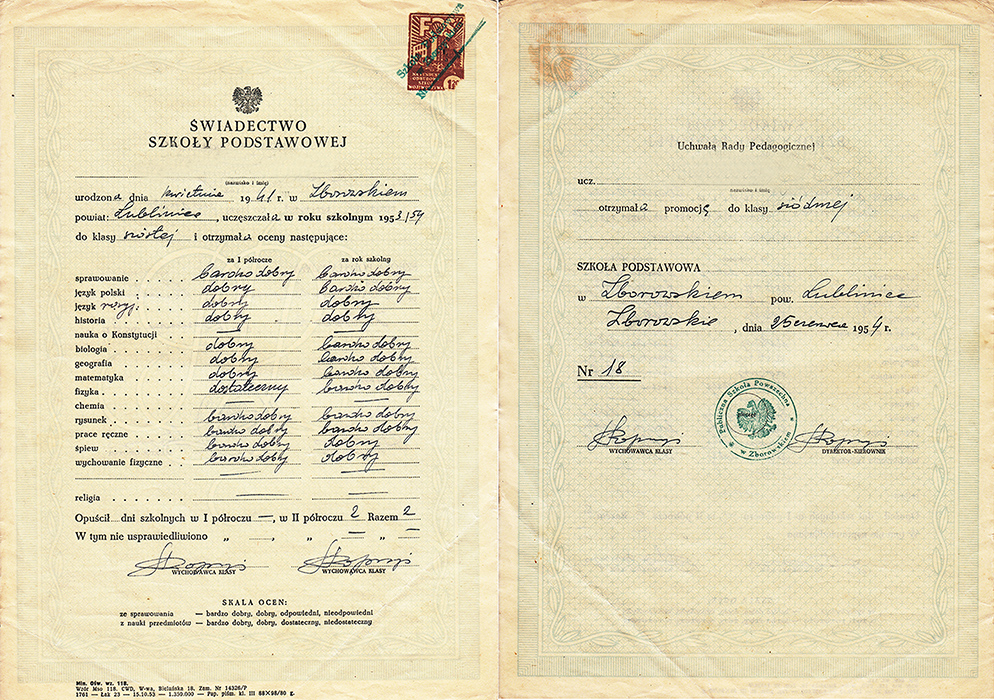 ŚWIADECTWO
SZKOŁY PODSTAWOWEJ
(nazwisko i imię)
urodzona dnia kwietnia 1941 r. w Zborowskiem
powiat: Lubliniec, uczęszczała w roku szkolnym 1953/54
do klasy szóstej i otrzymała oceny następujące:
za I półrocze za rok szkolny
sprawowanie bardzo dobry bardzo dobry
język polski dobry bardzo dobry
język rosyj. dobry dobry
historia dobry dobry
nauka o Konstytucji — —
biologia dobry bardzo dobry
geografia dobry bardzo dobry
matematyka dobry bardzo dobry
fizyka dostateczny bardzo dobry
chemia — —
rysunek bardzo dobry bardzo dobry
prace ręczne bardzo dobry bardzo dobry
śpiew bardzo dobry dobry
wychowanie fizyczne bardzo dobry dobry
— —
religia — —
Opuścił dni szkolnych w I półroczu —, w II półroczu 2 Razem 2
W tym nie usprawiedliwiono „ —, „ — „ —
WYCHOWAWCA KLASY WYCHOWAWCA KLASY
SKALA OCEN:
ze sprawowania — bardzo dobry, dobry, odpowiedni, nieodpowiedni
z nauki przedmiotów — bardzo dobry, dobry, dostateczny, niedostateczny
Min. Ośw. wz. 118.
Wzór Mso 118. CWD, W-wa, Bielańska 18. Zam. Nr 14326/P
1761 — Łak 23 — 15.10.53 — 1.350.000 — Pap. piśm. kl. III 88×98/80 g.
Uchwałą Rady Pedagogicznej
ucz.
nazwisko i imię
otrzymała promocję do klasy siódmej
SZKOŁA PODSTAWOWA
w Zborowskiem pow. Lubliniec
Zborowskie, dnia 25 czerwca 1954 r.
Nr 18
Publiczna Szkoła Powszechna
w Zborowskiem
WYCHOWAWCA KLASY DYREKTOR-KIEROWNIK